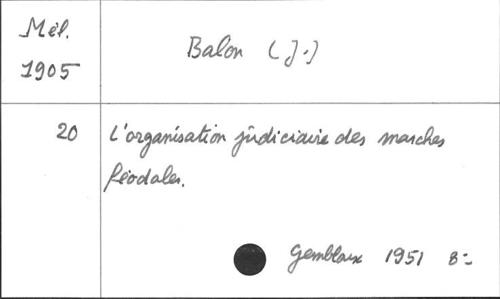 Mél.
1905
Balon (J.)
20
L'organisation judiciaire des marches
féodales.
Gembloux 1951 8=